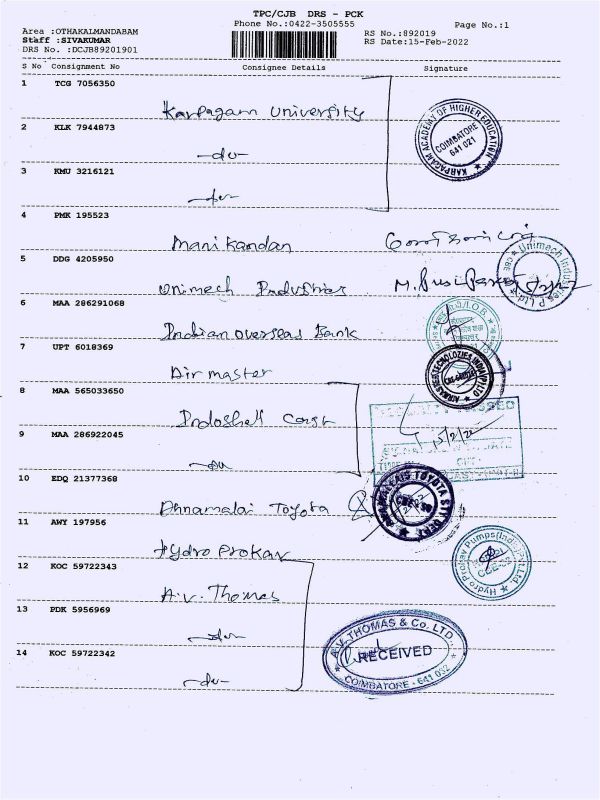 TPC/CJB DRS - PCK
Phone No.:0422-3505555
Page No.:1
Area :OTHAKALMANDABAM
Staff :SIVAKUMAR
DRS No. :DCJB89201901
RS No.:892019
RS Date:15-Feb-2022
S No Consignment No Consignee Details Signature
1 TCG 7056350
Karpagam University
KARPAGAM ACADEMY OF HIGHER EDUCATION
COIMBATORE
641 021
2 KLK 7944873
-do-
3 KMU 3216121
-do-
4 PMK 195523
Manikandan
5 DDG 4205950
Unimech Industries
Unimech Industries P Ltd
CBE
6 MAA 286291068
Indian overseas Bank
I.O.B.
7 UPT 6018369
Air master
8 MAA 565033650
Indoshell Cast
15/2/22
9 MAA 286922045
-do-
10 EDQ 21377368
Annamalai Toyota
11 AWY 197956
Hydro Prokav
Hydro Prokav Pumps(India) Pvt.Ltd
12 KOC 59722343
A.V. Thomas
13 PDK 5956969
-do-
A.V. THOMAS & Co. LTD.,
RECEIVED
COIMBATORE - 641 032
14 KOC 59722342
-do-